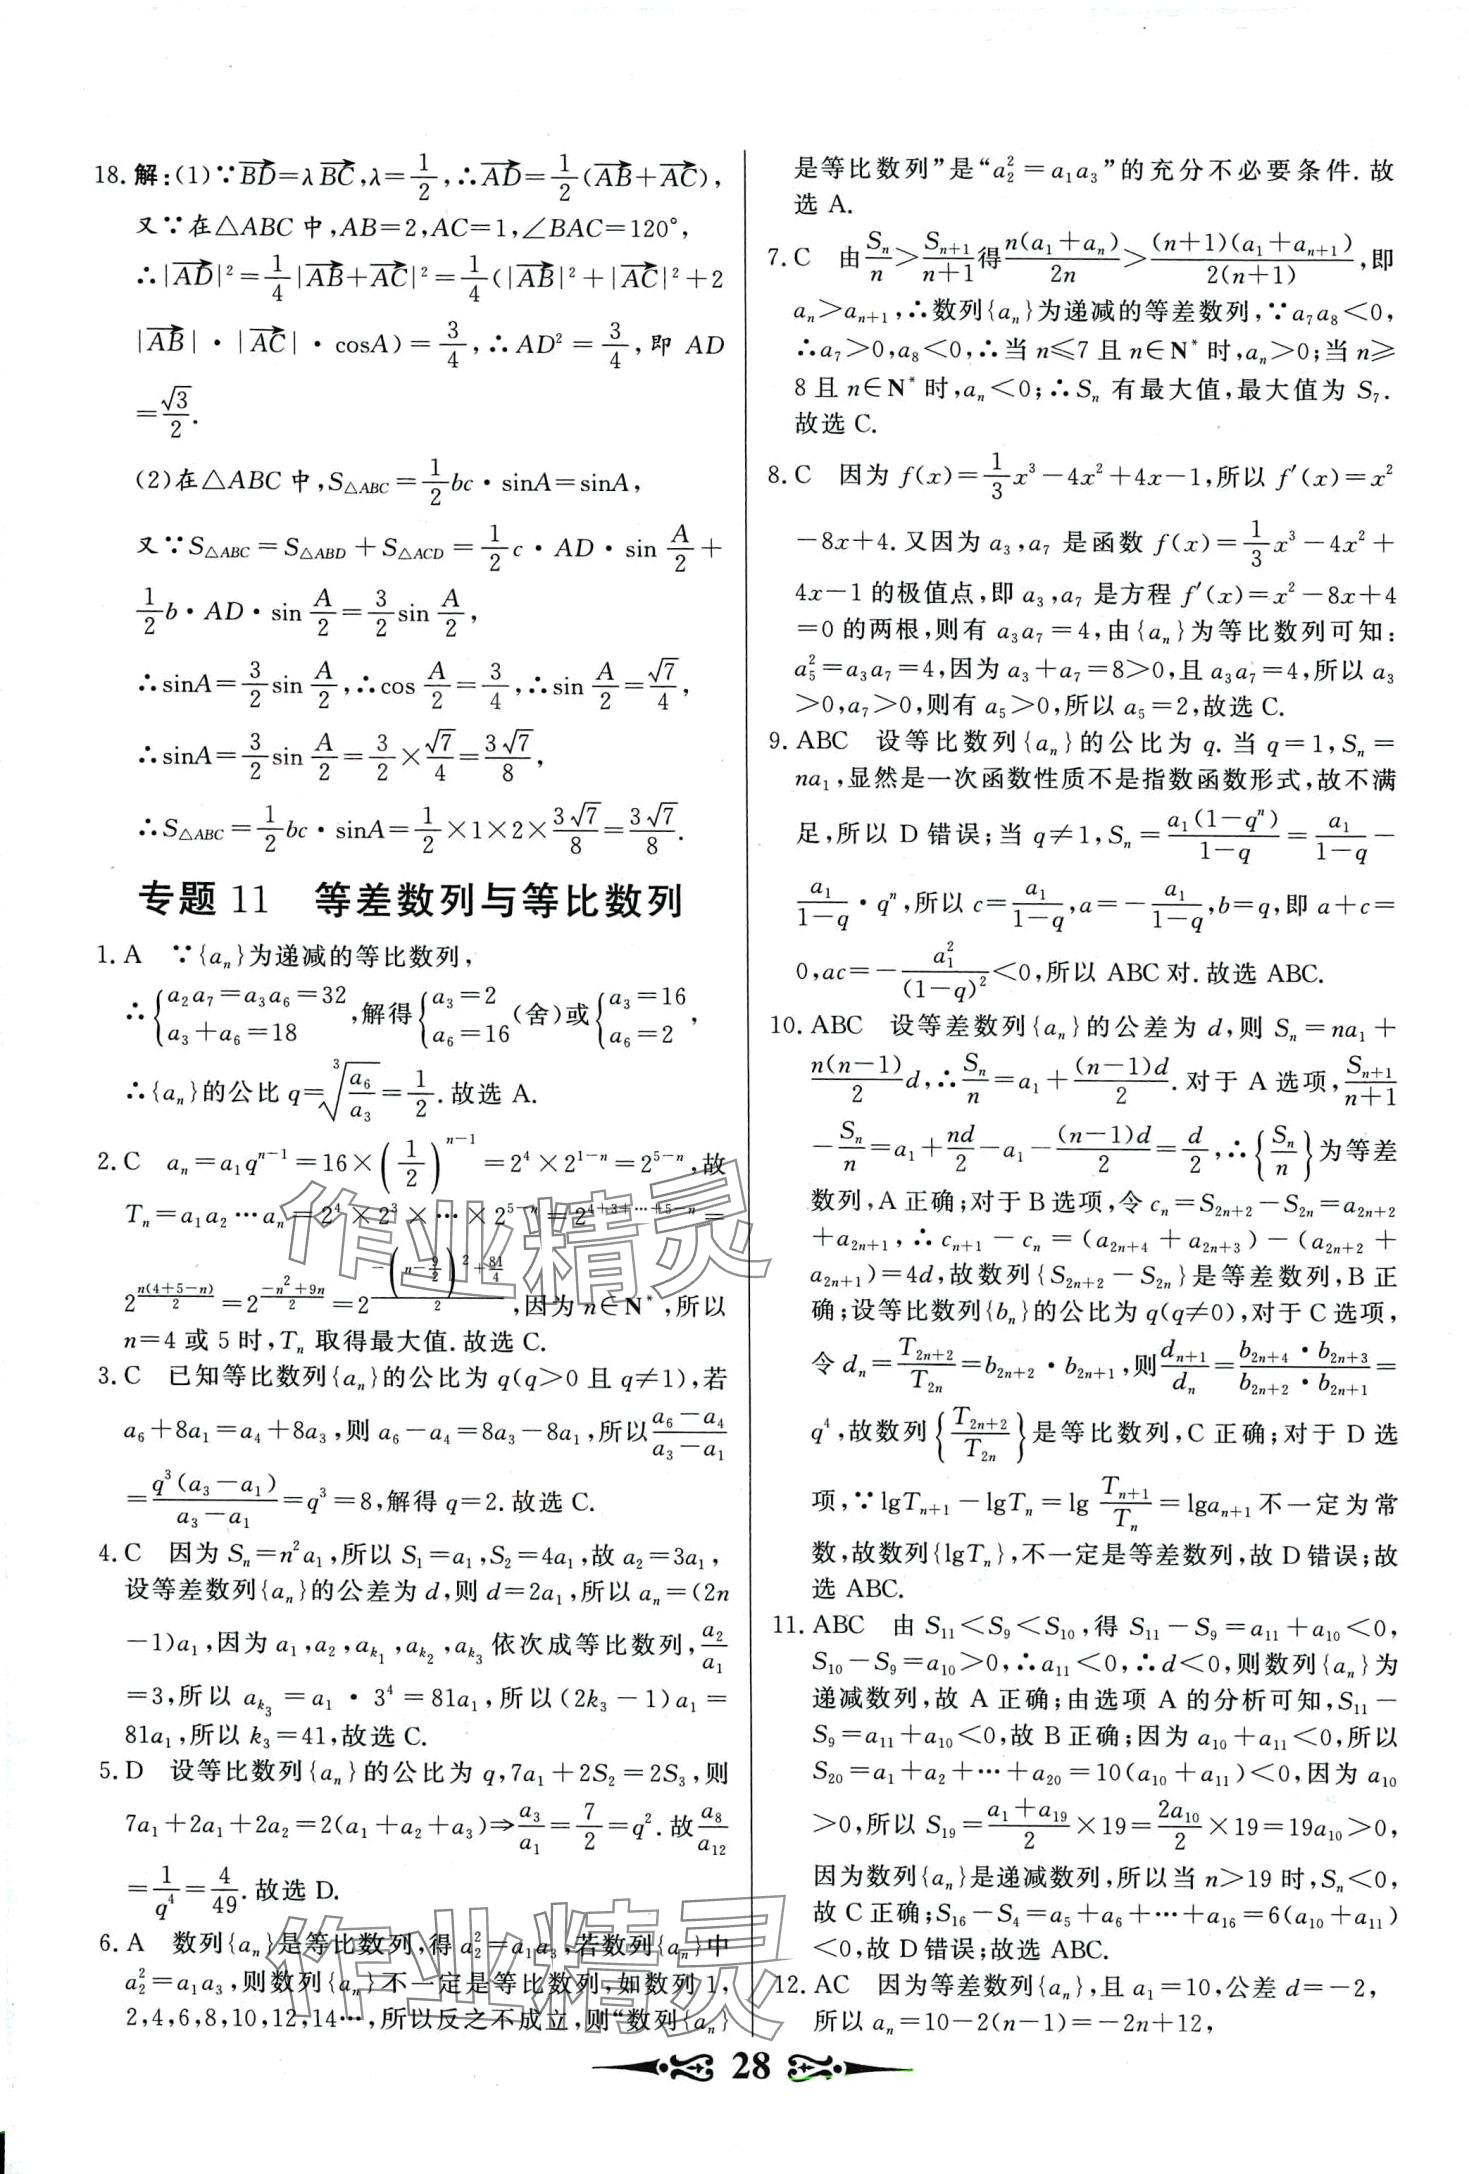 18. 解:(1)∵$\overrightarrow{BD}=\lambda\overrightarrow{BC}$,$\lambda=\frac{1}{2}$,∴$\overrightarrow{AD}=\frac{1}{2}(\overrightarrow{AB}+\overrightarrow{AC})$,
又∵在△ABC 中,AB=2,AC=1,∠BAC=120°,
∴$|\overrightarrow{AD}|^2=\frac{1}{4}|\overrightarrow{AB}+\overrightarrow{AC}|^2=\frac{1}{4}(|\overrightarrow{AB}|^2+|\overrightarrow{AC}|^2+2$
$|\overrightarrow{AB}|\cdot|\overrightarrow{AC}|\cdot\cos A)=\frac{3}{4}$,∴$AD^2=\frac{3}{4}$,即 AD
$=\frac{\sqrt{3}}{2}$.
(2)在△ABC 中,$S_{△ABC}=\frac{1}{2}bc\cdot\sin A=\sin A$,
又∵$S_{△ABC}=S_{△ABD}+S_{△ACD}=\frac{1}{2}c\cdot AD\cdot\sin\frac{A}{2}+$
$\frac{1}{2}b\cdot AD\cdot\sin\frac{A}{2}=\frac{3}{2}\sin\frac{A}{2}$,
∴$\sin A=\frac{3}{2}\sin\frac{A}{2}$,∴$\cos\frac{A}{2}=\frac{3}{4}$,∴$\sin\frac{A}{2}=\frac{\sqrt{7}}{4}$,
∴$\sin A=\frac{3}{2}\sin\frac{A}{2}=\frac{3}{2}\times\frac{\sqrt{7}}{4}=\frac{3\sqrt{7}}{8}$,
∴$S_{△ABC}=\frac{1}{2}bc\cdot\sin A=\frac{1}{2}\times1\times2\times\frac{3\sqrt{7}}{8}=\frac{3\sqrt{7}}{8}$.
专题 11 等差数列与等比数列
1. A ∵$\{a_n\}$为递减的等比数列,
∴$\begin{cases}a_2a_7=a_3a_6=32\\a_3+a_6=18\end{cases}$,解得$\begin{cases}a_3=2\\a_6=16\end{cases}$(舍)或$\begin{cases}a_3=16\\a_6=2\end{cases}$,
∴$\{a_n\}$的公比 $q=\sqrt[3]{\frac{a_6}{a_3}}=\frac{1}{2}$.故选 A.
2. C $a_n=a_1q^{n-1}=16\times\left(\frac{1}{2}\right)^{n-1}=2^4\times2^{1-n}=2^{5-n}$,故
$T_n=a_1a_2\cdots a_n=2^4\times2^3\times\cdots\times2^{5-n}=2^{4+3+\cdots+5-n}=$
$2^{\frac{n(4+5-n)}{2}}=2^{\frac{-n^2+9n}{2}}=2^{\frac{-\left(n-\frac{9}{2}\right)^2+\frac{81}{4}}{2}}$,因为 $n\in\mathbf{N}^*$,所以
n=4 或 5 时,$T_n$ 取得最大值.故选 C.
3. C 已知等比数列$\{a_n\}$的公比为 q(q>0 且 q≠1),若
$a_6+8a_1=a_4+8a_3$,则 $a_6-a_4=8a_3-8a_1$,所以$\frac{a_6-a_4}{a_3-a_1}$
$=\frac{q^3(a_3-a_1)}{a_3-a_1}=q^3=8$,解得 q=2.故选 C.
4. C 因为 $S_n=n^2a_1$,所以 $S_1=a_1$,$S_2=4a_1$,故 $a_2=3a_1$,
设等差数列$\{a_n\}$的公差为 d,则 $d=2a_1$,所以 $a_n=(2n$
$-1)a_1$,因为 $a_1,a_2,a_{k_1},a_{k_2},a_{k_3}$ 依次成等比数列,$\frac{a_2}{a_1}$
=3,所以 $a_{k_3}=a_1\cdot3^4=81a_1$,所以$(2k_3-1)a_1=$
$81a_1$,所以 $k_3=41$,故选 C.
5. D 设等比数列$\{a_n\}$的公比为 q,$7a_1+2S_2=2S_3$,则
$7a_1+2a_1+2a_2=2(a_1+a_2+a_3)\Rightarrow\frac{a_3}{a_1}=\frac{7}{2}=q^2$.故$\frac{a_8}{a_{12}}$
$=\frac{1}{q^4}=\frac{4}{49}$.故选 D.
6. A 数列$\{a_n\}$是等比数列,得 $a_2^2=a_1a_3$,若数列$\{a_n\}$中
$a_2^2=a_1a_3$,则数列$\{a_n\}$不一定是等比数列,如数列 1,
2,4,6,8,10,12,14…,所以反之不成立,则“数列$\{a_n\}$
是等比数列”是“$a_2^2=a_1a_3$”的充分不必要条件.故
选 A.
7. C 由$\frac{S_n}{n}>\frac{S_{n+1}}{n+1}$得$\frac{n(a_1+a_n)}{2n}>\frac{(n+1)(a_1+a_{n+1})}{2(n+1)}$,即
$a_n>a_{n+1}$,∴数列$\{a_n\}$为递减的等差数列,∵$a_7a_8<0$,
∴$a_7>0$,$a_8<0$,∴当 n≤7 且 $n\in\mathbf{N}^*$ 时,$a_n>0$;当 n≥
8 且 $n\in\mathbf{N}^*$ 时,$a_n<0$;∴$S_n$ 有最大值,最大值为 $S_7$.
故选 C.
8. C 因为 $f(x)=\frac{1}{3}x^3-4x^2+4x-1$,所以 $f'(x)=x^2$
$-8x+4$.又因为 $a_3,a_7$ 是函数 $f(x)=\frac{1}{3}x^3-4x^2+$
$4x-1$ 的极值点,即 $a_3,a_7$ 是方程 $f'(x)=x^2-8x+4$
=0 的两根,则有 $a_3a_7=4$,由$\{a_n\}$为等比数列可知:
$a_5^2=a_3a_7=4$,因为 $a_3+a_7=8>0$,且 $a_3a_7=4$,所以 $a_3$
>0,$a_7>0$,则有 $a_5>0$,所以 $a_5=2$,故选 C.
9. ABC 设等比数列$\{a_n\}$的公比为 q.当 q=1,$S_n=$
$na_1$,显然是一次函数性质不是指数函数形式,故不满
足,所以 D 错误;当 q≠1,$S_n=\frac{a_1(1-q^n)}{1-q}=\frac{a_1}{1-q}-$
$\frac{a_1}{1-q}\cdot q^n$,所以 $c=\frac{a_1}{1-q}$,$a=-\frac{a_1}{1-q}$,$b=q$,即 a+c=
0,$ac=-\frac{a_1^2}{(1-q)^2}<0$,所以 ABC 对.故选 ABC.
10. ABC 设等差数列$\{a_n\}$的公差为 d,则 $S_n=na_1+$
$\frac{n(n-1)}{2}d$,∴$\frac{S_n}{n}=a_1+\frac{(n-1)d}{2}$.对于 A 选项,$\frac{S_{n+1}}{n+1}$
$-\frac{S_n}{n}=a_1+\frac{nd}{2}-a_1-\frac{(n-1)d}{2}=\frac{d}{2}$,∴$\left\{\frac{S_n}{n}\right\}$为等差
数列,A 正确;对于 B 选项,令 $c_n=S_{2n+2}-S_{2n}=a_{2n+2}$
$+a_{2n+1}$,∴$c_{n+1}-c_n=(a_{2n+4}+a_{2n+3})-(a_{2n+2}+$
$a_{2n+1})=4d$,故数列$\{S_{2n+2}-S_{2n}\}$是等差数列,B 正
确;设等比数列$\{b_n\}$的公比为 q(q≠0),对于 C 选项,
令 $d_n=\frac{T_{2n+2}}{T_{2n}}=b_{2n+2}\cdot b_{2n+1}$,则$\frac{d_{n+1}}{d_n}=\frac{b_{2n+4}\cdot b_{2n+3}}{b_{2n+2}\cdot b_{2n+1}}=$
$q^4$,故数列$\left\{\frac{T_{2n+2}}{T_{2n}}\right\}$是等比数列,C 正确;对于 D 选
项,∵$\lg T_{n+1}-\lg T_n=\lg\frac{T_{n+1}}{T_n}=\lg a_{n+1}$不一定为常
数,故数列$\{\lg T_n\}$,不一定是等差数列,故 D 错误;故
选 ABC.
11. ABC 由 $S_{11}<S_9<S_{10}$,得 $S_{11}-S_9=a_{11}+a_{10}<0$,
$S_{10}-S_9=a_{10}>0$,∴$a_{11}<0$,∴d<0,则数列$\{a_n\}$为
递减数列,故 A 正确;由选项 A 的分析可知,$S_{11}-$
$S_9=a_{11}+a_{10}<0$,故 B 正确;因为 $a_{10}+a_{11}<0$,所以
$S_{20}=a_1+a_2+\cdots+a_{20}=10(a_{10}+a_{11})<0$,因为 $a_{10}$
>0,所以 $S_{19}=\frac{a_1+a_{19}}{2}\times19=\frac{2a_{10}}{2}\times19=19a_{10}>0$,
因为数列$\{a_n\}$是递减数列,所以当 n>19 时,$S_n<0$,
故 C 正确;$S_{16}-S_4=a_5+a_6+\cdots+a_{16}=6(a_{10}+a_{11})$
<0,故 D 错误;故选 ABC.
12. AC 因为等差数列$\{a_n\}$,且 $a_1=10$,公差 d=−2,
所以 $a_n=10-2(n-1)=-2n+12$,
28
作业精灵
作业精灵